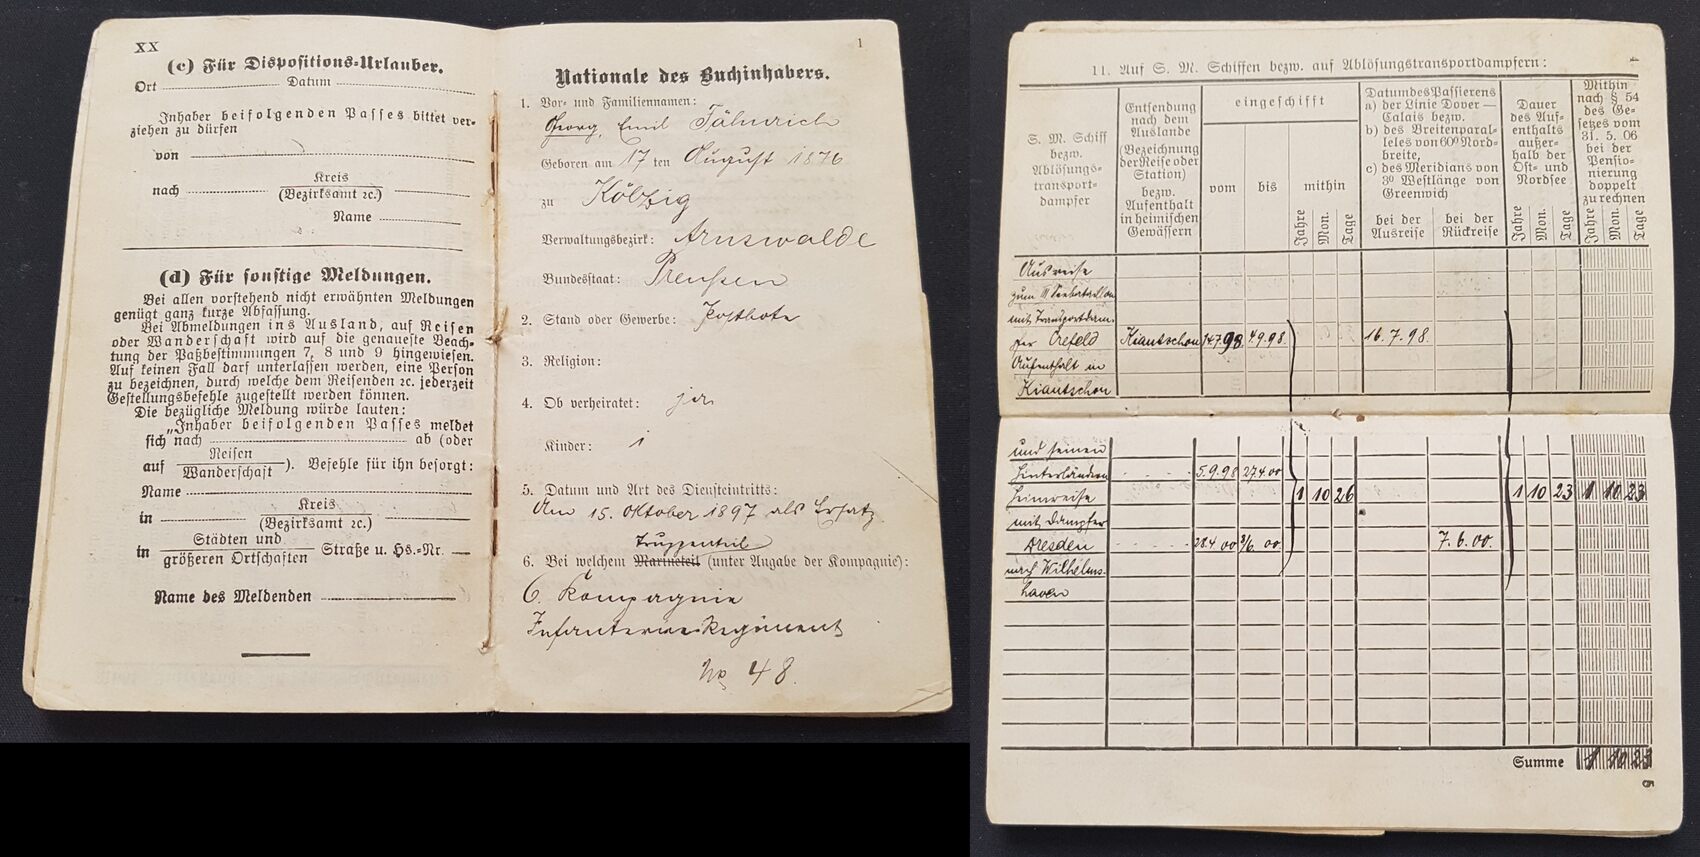 XX
(c) Für Dispositions-Urlauber.
Ort ........ Datum ........
Inhaber beifolgenden Passes bittet ver-
ziehen zu dürfen
von ........
nach ........ Kreis
(Bezirksamt ꝛc.)
Name ........
(d) Für sonstige Meldungen.
Bei allen vorstehend nicht erwähnten Meldungen
genügt ganz kurze Abfassung.
Bei Abmeldungen ins Ausland, auf Reisen
oder Wanderschaft wird auf die genaueste Beach-
tung der Paßbestimmungen 7, 8 und 9 hingewiesen.
Auf keinen Fall darf unterlassen werden, eine Person
zu bezeichnen, durch welche dem Reisenden ꝛc. jederzeit
Gestellungsbefehle zugestellt werden können.
Die bezügliche Meldung würde lauten:
„Inhaber beifolgenden Passes meldet
sich nach ........ ab (oder
auf Reisen
Wanderschaft ). Befehle für ihn besorgt:
Name ........
in ........ Kreis
(Bezirksamt ꝛc.)
in Städten und
größeren Ortschaften Straße u. Hs.-Nr.
Name des Meldenden ........
1
Nationale des Buchinhabers.
1. Vor- und Familiennamen:
Georg, Emil Fähnrich
Geboren am 17 ten August 1876
zu Kölzig
Verwaltungsbezirk: Arnswalde
Bundesstaat: Preußen
2. Stand oder Gewerbe: Postbote
3. Religion:
4. Ob verheiratet: ja
Kinder: 1
5. Datum und Art des Diensteintritts:
Am 15. Oktober 1897 als Ersatz
Truppenteil
6. Bei welchem Marineteil (unter Angabe der Kompagnie):
6. Kompagnie
Infanterie Regiment
No 48.
4
11. Auf S. M. Schiffen bezw. auf Ablösungstransportdampfern:
S. M. Schiff
bezw.
Ablösungs-
transport-
dampfer
Entsendung
nach dem
Auslande
(Bezeichnung
der Reise oder
Station)
bezw.
Aufenthalt
in heimischen
Gewässern
eingeschifft
vom
bis
mithin
Jahre
Mon.
Tage
Datum des Passierens
a) der Linie Dover —
Calais bezw.
b) des Breitenparal-
leles von 60° Nord-
breite,
c) des Meridians von
3° Westlänge von
Greenwich
bei der
Ausreise
bei der
Rückreise
Dauer
des Auf-
enthalts
außer-
halb der
Ost- und
Nordsee
Jahre
Mon.
Tage
Mithin
nach § 54
des Ge-
setzes vom
31. 5. 06
bei der
Pensio-
nierung
doppelt
zu rechnen
Jahre
Mon.
Tage
Ausreise
zum III Seebataillon
mit Transportdam-
pfer Crefeld Kiautschou 14.7.98. 4.9.98. 16.7.98.
Aufenthalt in
Kiautschou
und seinen
Hinterländern 5.9.98 27.4.00
Heimreise 1 10 26 1 10 23 1 10 23
mit Dampfer
Dresden 28.4.00 8/6. 00. 7.6.00.
nach Wilhelms-
haven
Summe 1 10 23
5